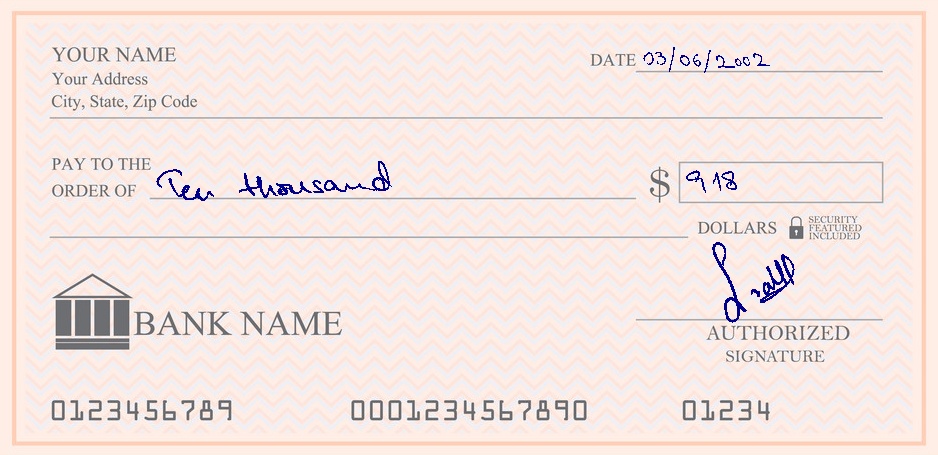 YOUR NAME
Your Address
City, State, Zip Code
DATE 03/06/2002
PAY TO THE
ORDER OF Ten thousand
$ 918
DOLLARS
SECURITY
FEATURED
INCLUDED
BANK NAME
AUTHORIZED
SIGNATURE
0123456789 0001234567890 01234